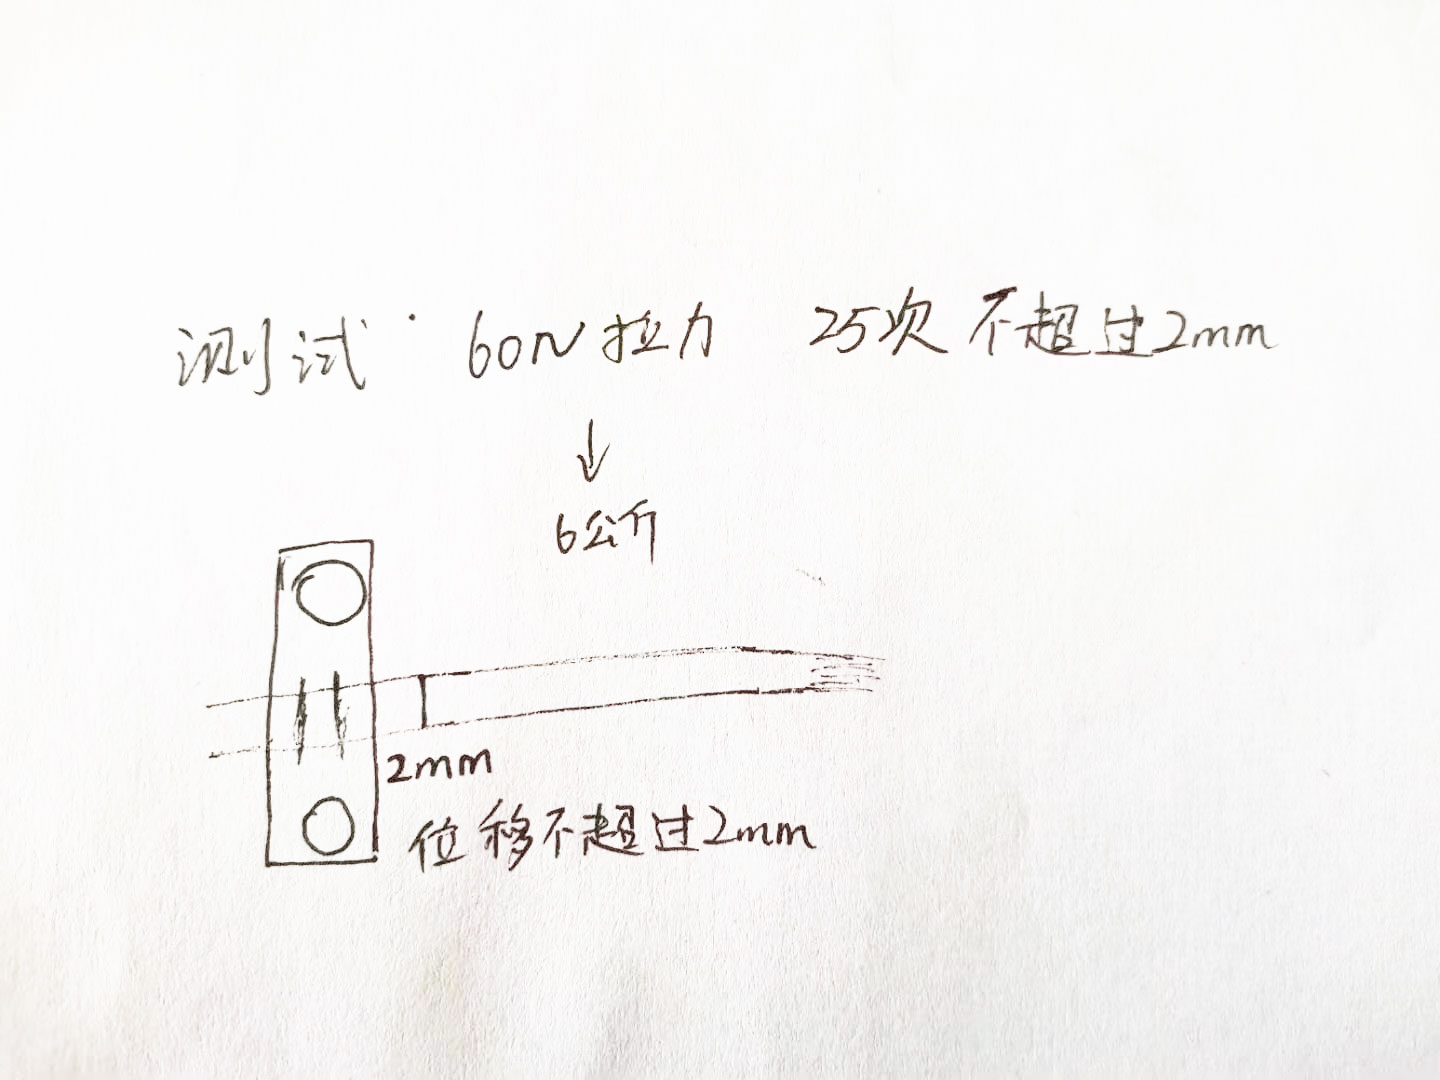 测试· 60N拉力 25次 不超过2mm
6公斤
2mm
位移不超过2mm